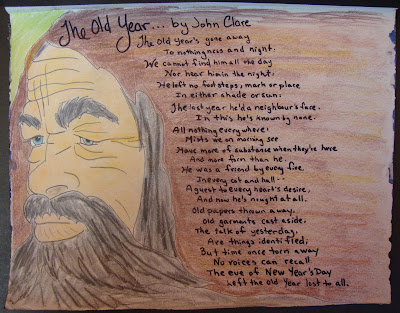 The Old Year... by John Clare
The Old Year's gone away
To nothingness and night:
We cannot find him all the day
Nor hear him in the night:
He left no footsteps, mark or place
In either shade or sun:
The last year he'd a neighbour's face,
In this he's known by none.
All nothing everywhere:
Mists we on morning see
Have more of substance when they're here
And more form than he.
He was a friend by every fire,
In every cot and hall--
A guest to every heart's desire,
And now he's nought at all.
Old papers thrown away,
Old garments cast aside,
The talk of yesterday,
Are things identified;
But time once torn away
No voices can recall
The eve of New Year's Day
Left the Old Year lost to all.